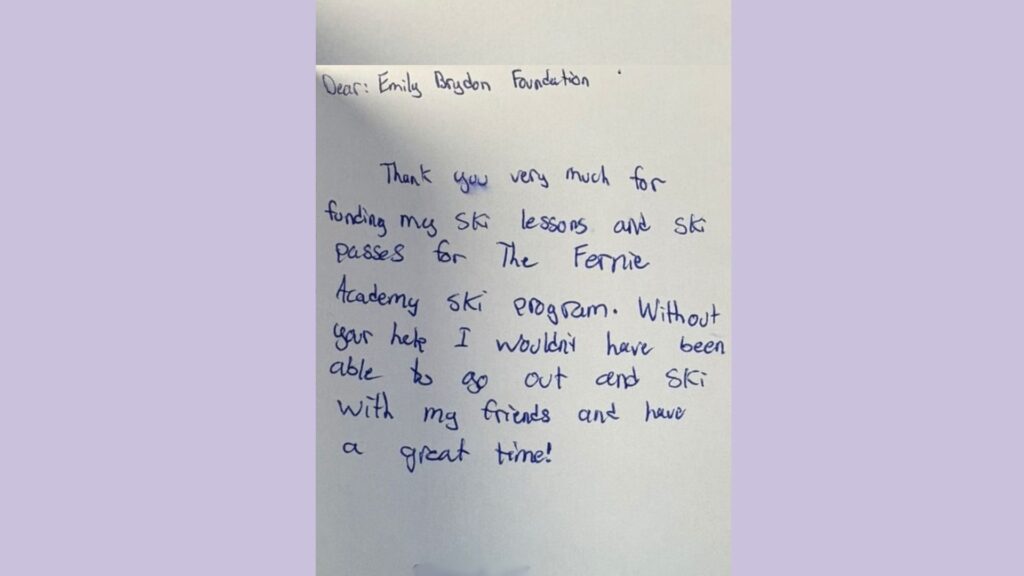 Dear: Emily Brydon Foundation
Thank you very much for
funding my ski lessons and ski
passes for The Fernie
Academy ski program. Without
your help I wouldn't have been
able to go out and ski
with my friends and have
a great time!